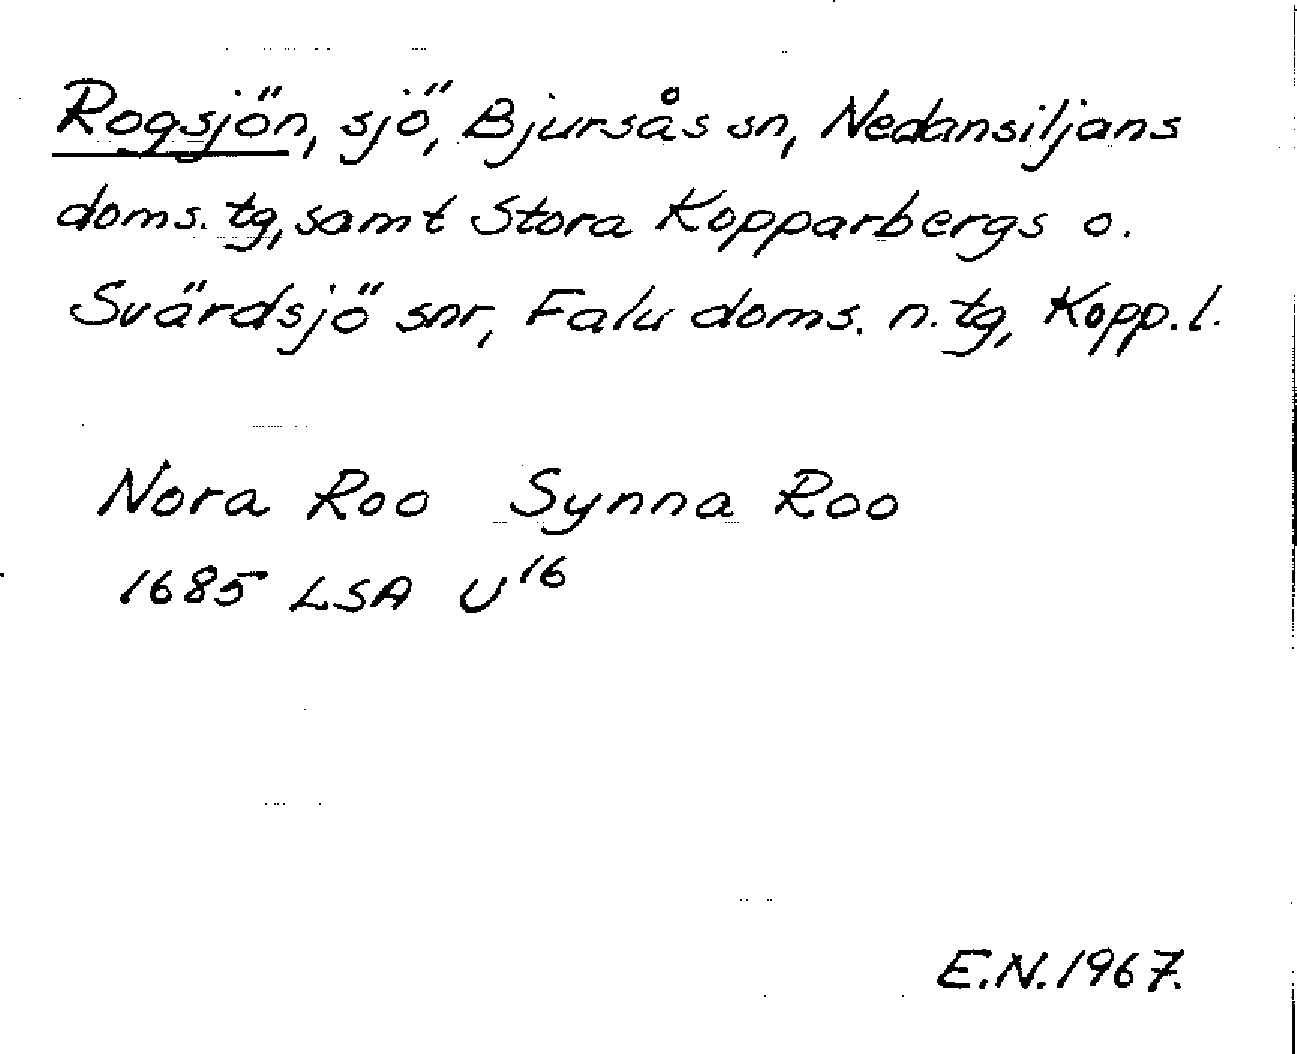 Rogsjön, sjö, Bjursås sn, Nedansiljans
doms. tg, samt Stora Kopparbergs o.
Svärdsjö snr, Falu doms. n. tg, Kopp. l.
Nora Roo Synna Roo
1685 LSA U16
E.N. 1967.